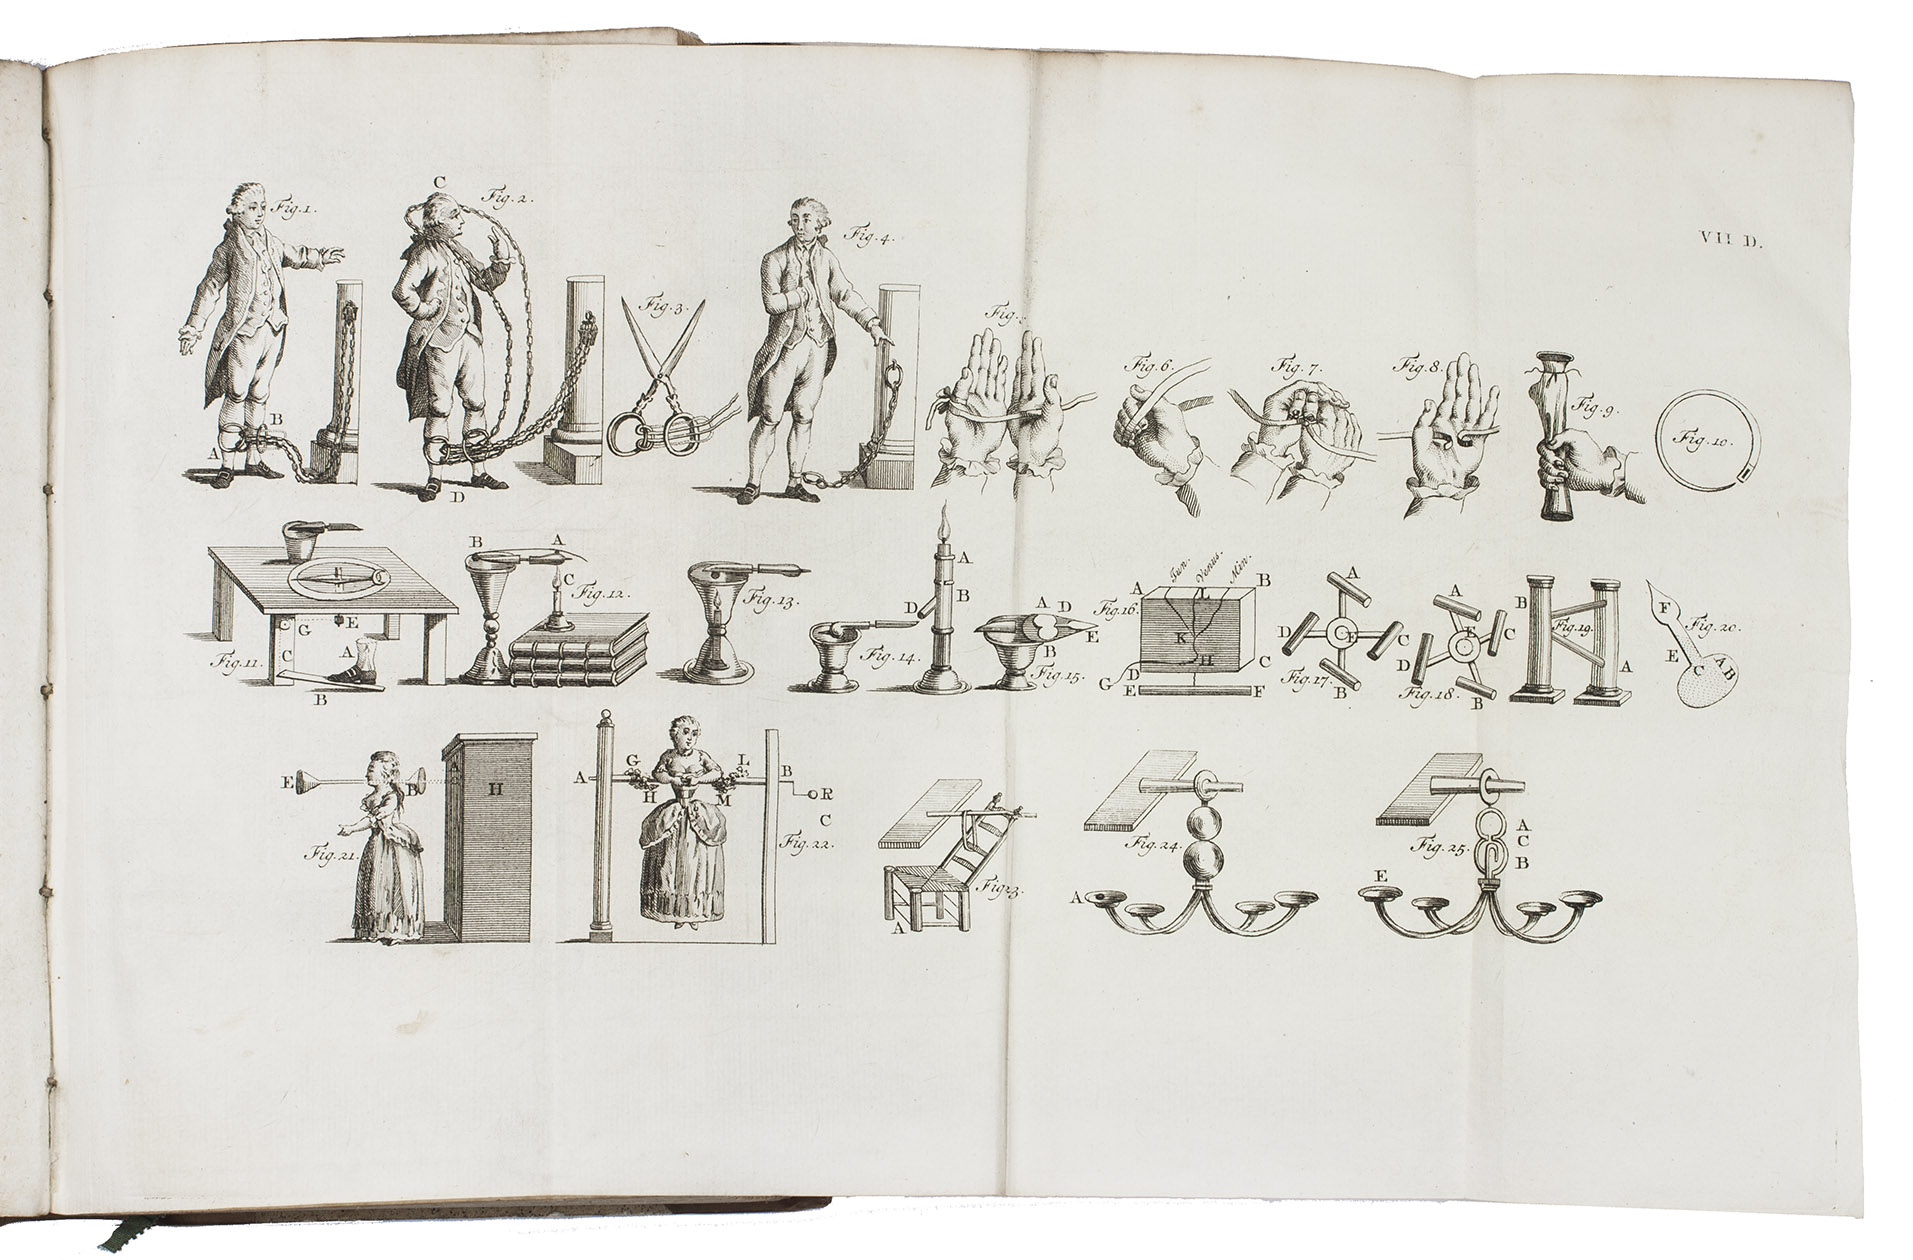 VII D.
Fig. 1.
A
B
C
Fig. 2.
D
Fig. 3.
Fig. 4.
Fig.
Fig. 6.
Fig. 7.
Fig. 8.
Fig. 9.
Fig. 10.
C G E
A
C
Fig. 11.
B
B A
C
Fig. 12.
Fig. 13.
A
B
D
Fig. 14.
A D
E
B
Fig. 15.
Jun. Venus. Min.
A L B
Fig. 16.
K
H
C
D
G
E F
A
D E C
Fig. 17.
B
A
E C
D
Fig. 18.
B
B
Fig. 19.
A
F
Fig. 20.
E C A B
E B A H
Fig. 21.
A G L B
H M
R
C
Fig. 22.
Fig 23.
A
Fig. 24.
A
Fig. 25.
A
C
B
E